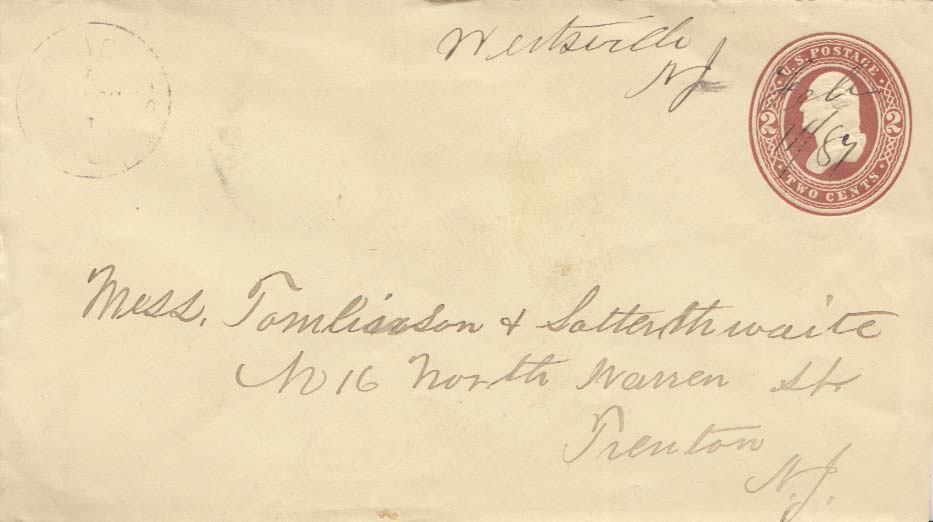 Wertsville
NJ
U.S. POSTAGE
2 2
TWO CENTS
Feb
11/87
Mess. Tomlinson & Satterthwaite
No 16 North Warren St.
Trenton
N.J.